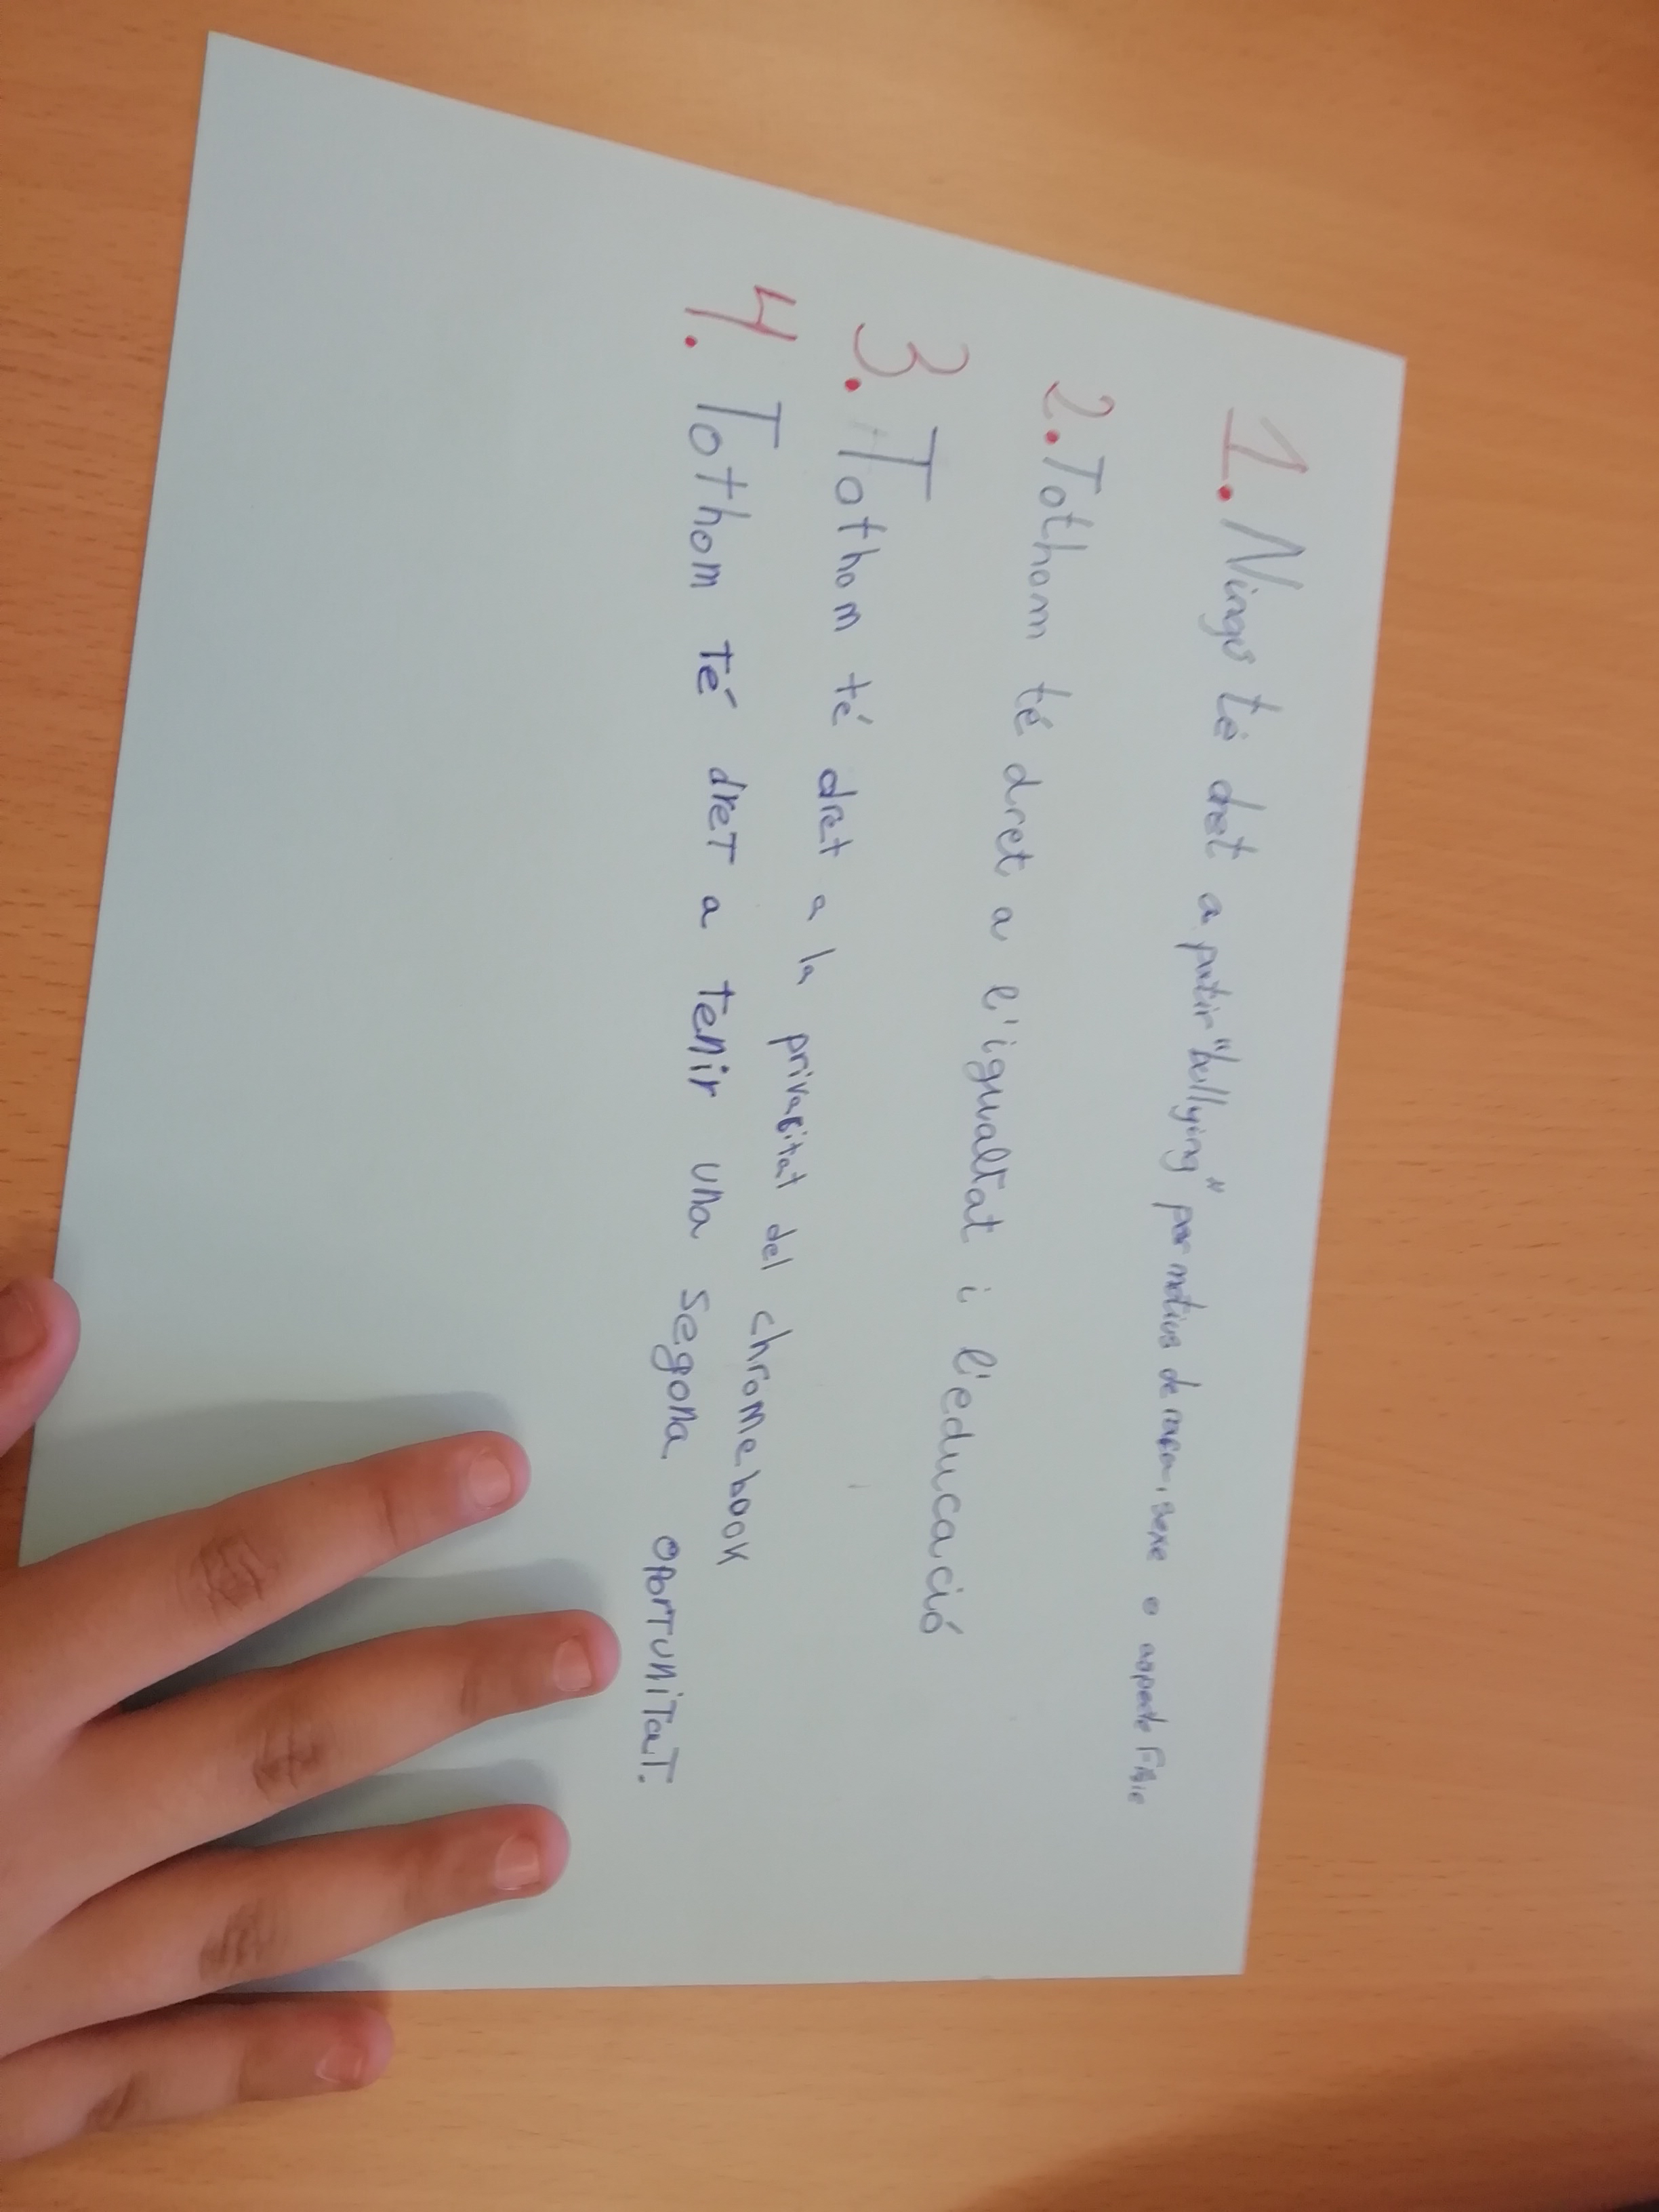 1. Ningú té dret a patir "bullying" per motius de raça, sexe o aspecte Físic
2. Tothom té dret a l'igualtat i l'educació
3. Tothom té dret a la privacitat del chromebook
4. Tothom Té dreT a Tenir una segona oporTuniTaT.